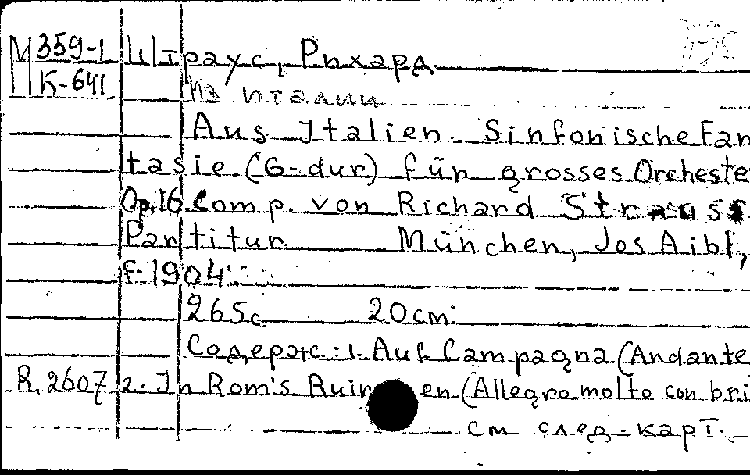 М 359-1 Штраус, Рихард
К-641
Из италии
Aus Italien. Sinfonische Fan
tasie (G-dur) für grosses Orcheste
Op.16 Comp. von Richard Strauss.
Partitur München, Jos Aibl,
f. 1904
265с 20cm.
Содерж: 1. Auf Campagna (Andante
R. 2607 2. In Rom's Ruinen (Allegro molto con bri
см след. карт.